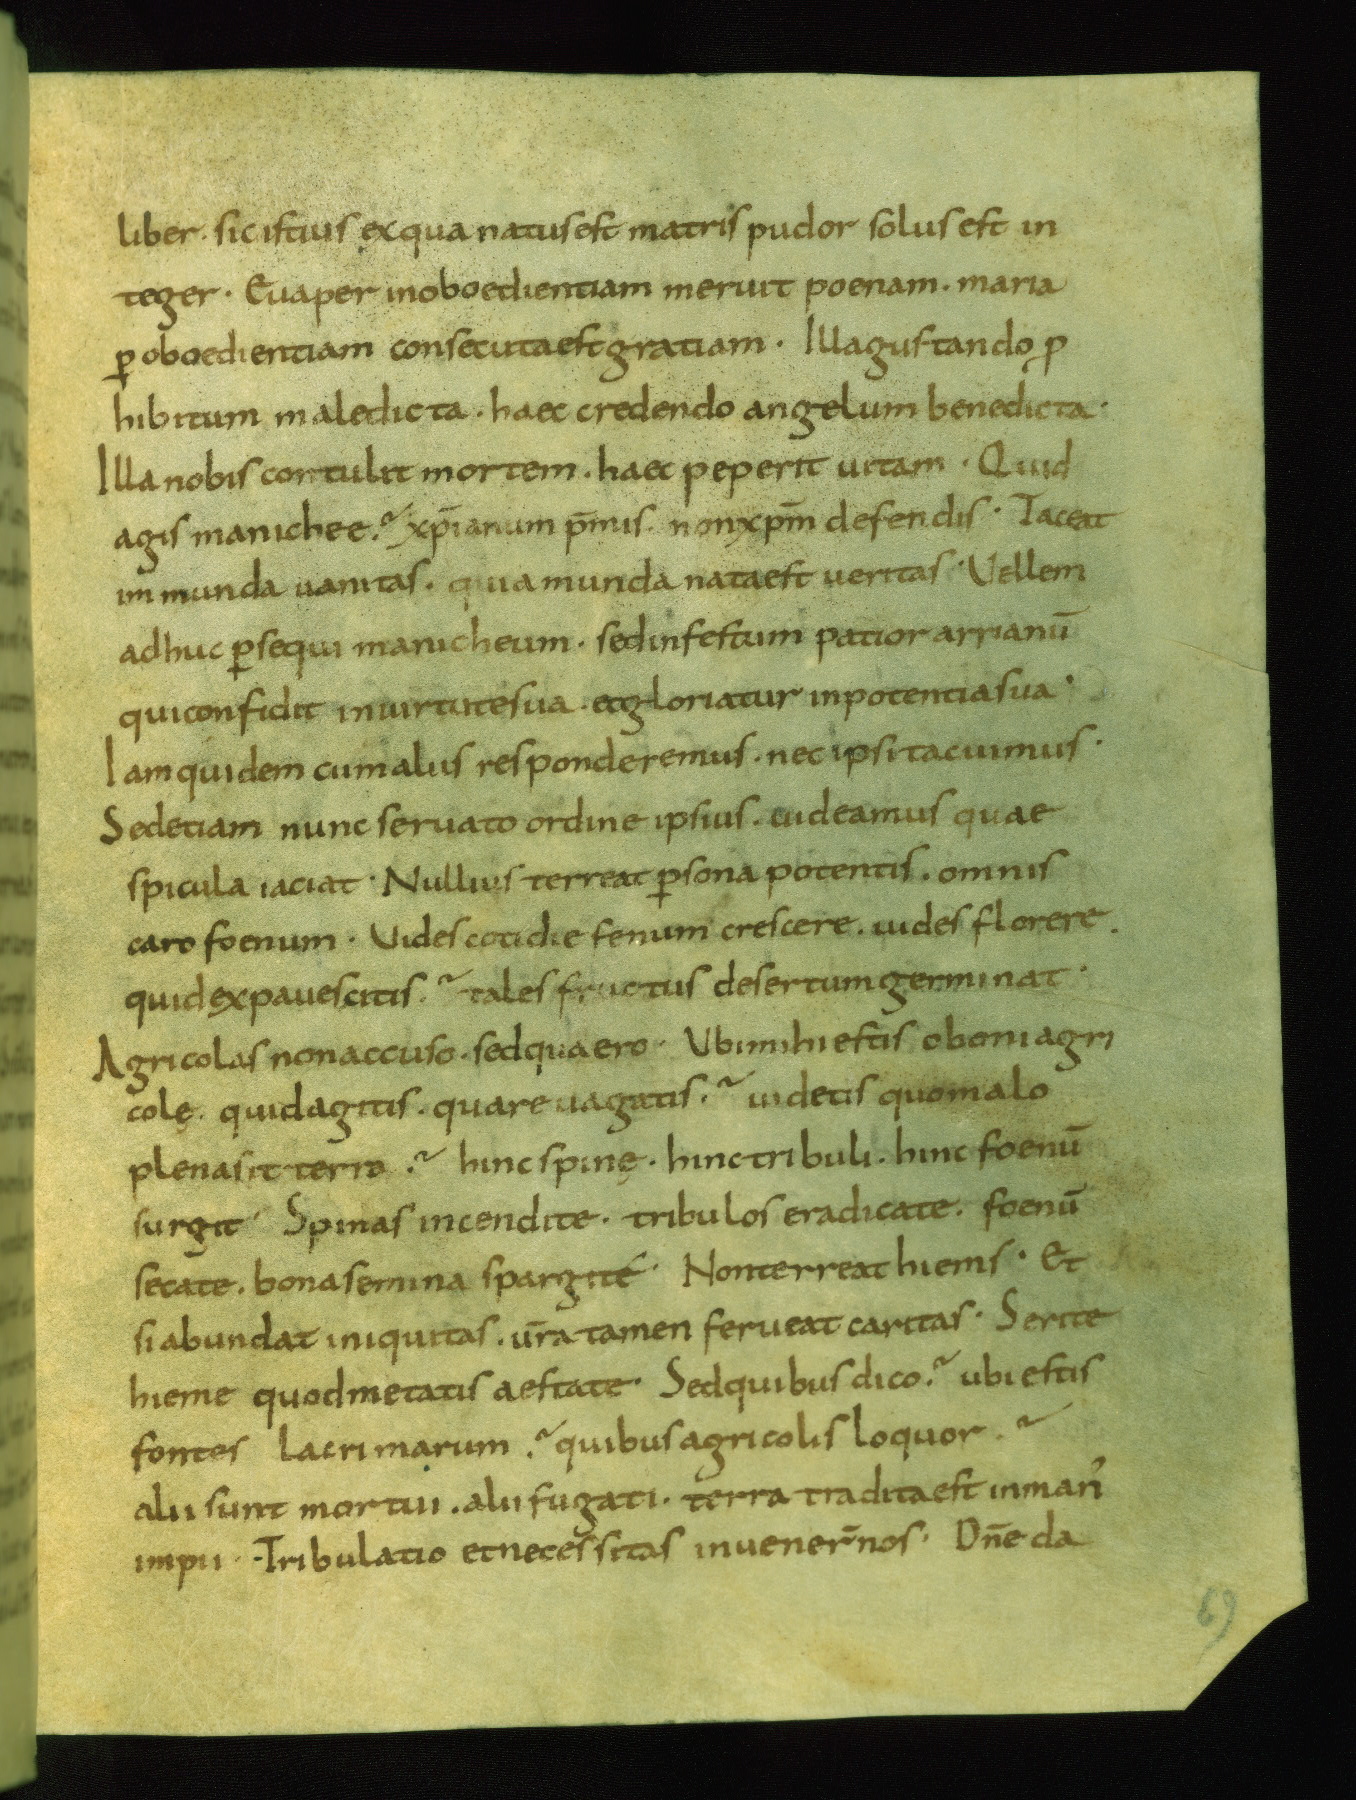 liber. sic istius ex qua natus est matris pudor solus est in
teger. Eua per inoboedientiam meruit poenam. maria
ꝑ oboedientiam consecuta est gratiam. Illa gustando ꝓ
hibitum maledicta. haec credendo angelum benedicta.
Illa nobis contulit mortem. haec peperit uitam. Quid
agis manichee? xp̄ianum p̄mis. non xpm̄ defendis. Taceat
immunda uanitas. quia munda nata est ueritas. Vellem
adhuc ꝑsequi manicheum. sed infestum patior arrianū
qui confidit in uirtute sua. et gloriatur in potentia sua.
Iam quidem cum alus responderemus. nec ipsi tacuimus.
Sed etiam nunc seruato ordine ipsius. uideamus quae
spicula iaciat. Nullius terreat ꝑsona potentis. omnis
caro foenum. Uides cotidie fenum crescere. uides florere.
quid expauescitis? tales fructus desertum germinat.
Agricolas non accuso. sed quaero. Ubi mihi estis o boni agri
colę. quid agitis. quare uagatis? uidetis quo malo
plena sit terra? hinc spinę. hinc tribuli. hinc foenū
surgit. Spinas incendite. tribulos eradicate. foenū
secate. bona semina spargite. Non terreat hiems. Et
si abundat iniquitas. ur̄a tamen ferueat caritas. Serite
hieme quod metatis aestate. Sed quibus dico? ubi estis
fontes lacrimarum? quibus agricolis loquor?
alii sunt mortui. alii fugati. terra tradita est in man᾽
impii. Tribulatio et necessitas inuener̄ nos. Dn̄e da
69